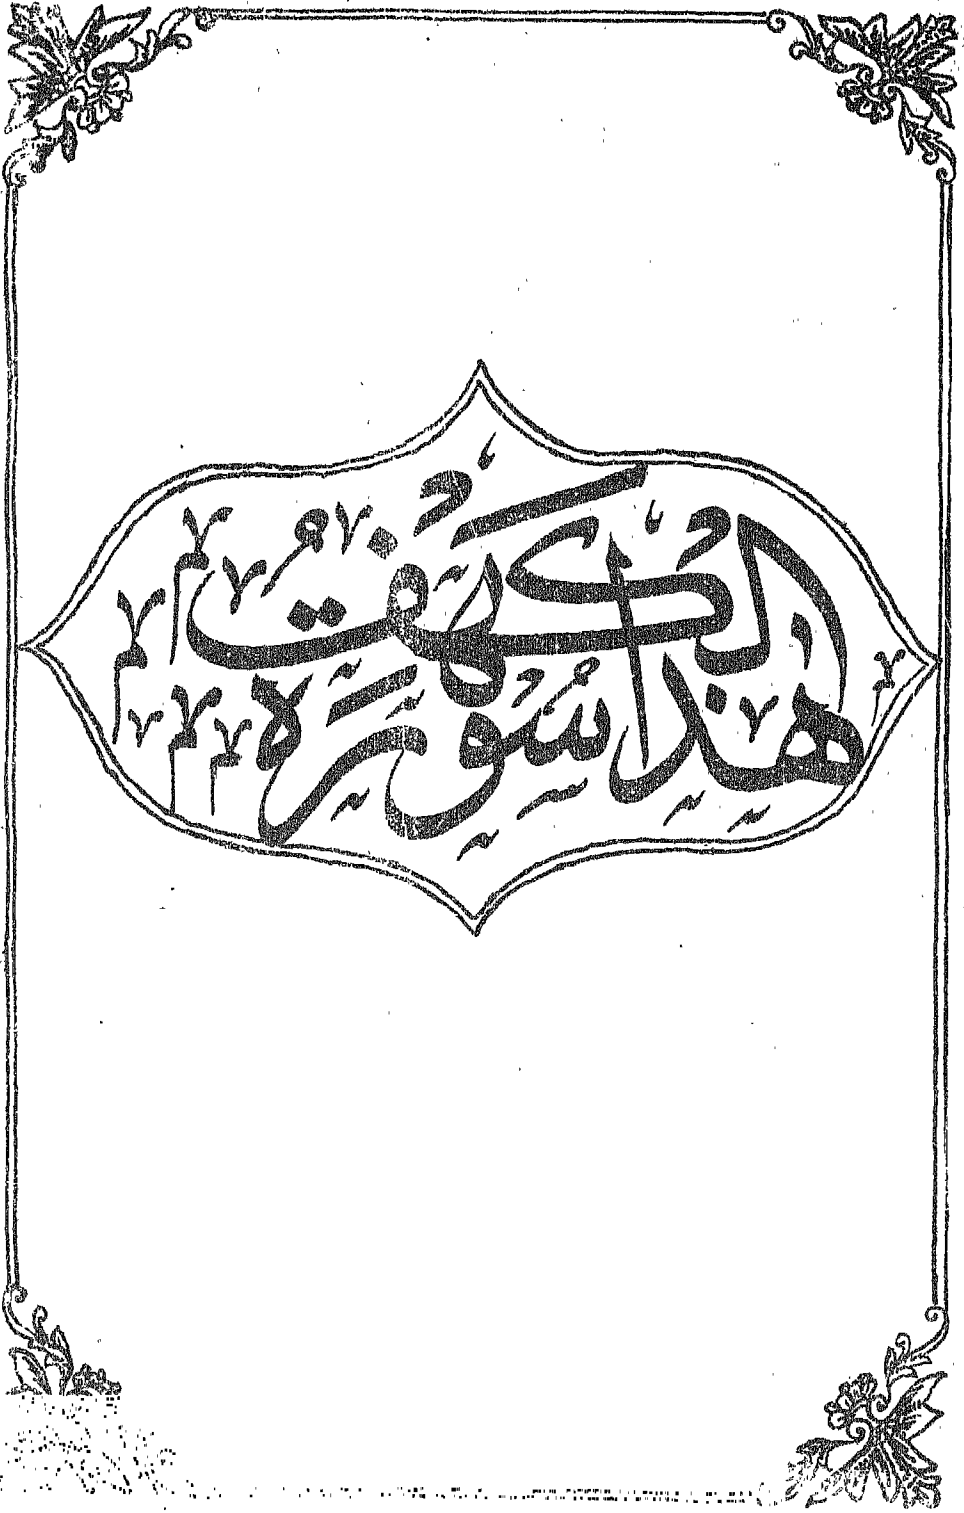 هذا سورة
الكهف